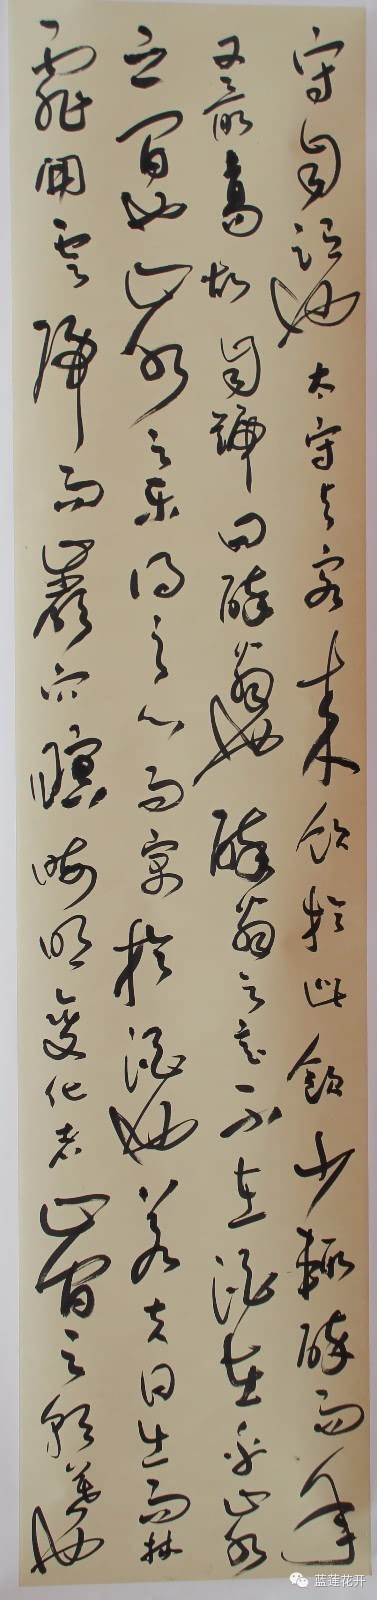 守自謂也太守与客来飲於此飲少輒醉而年
又最高故自號曰醉翁也醉翁之意不在酒在乎山水
之間也山水之樂得之心而寓於酒也若夫日出而林
霏開雲歸而巖穴暝晦明變化者山間之朝暮也
蓝莲花开